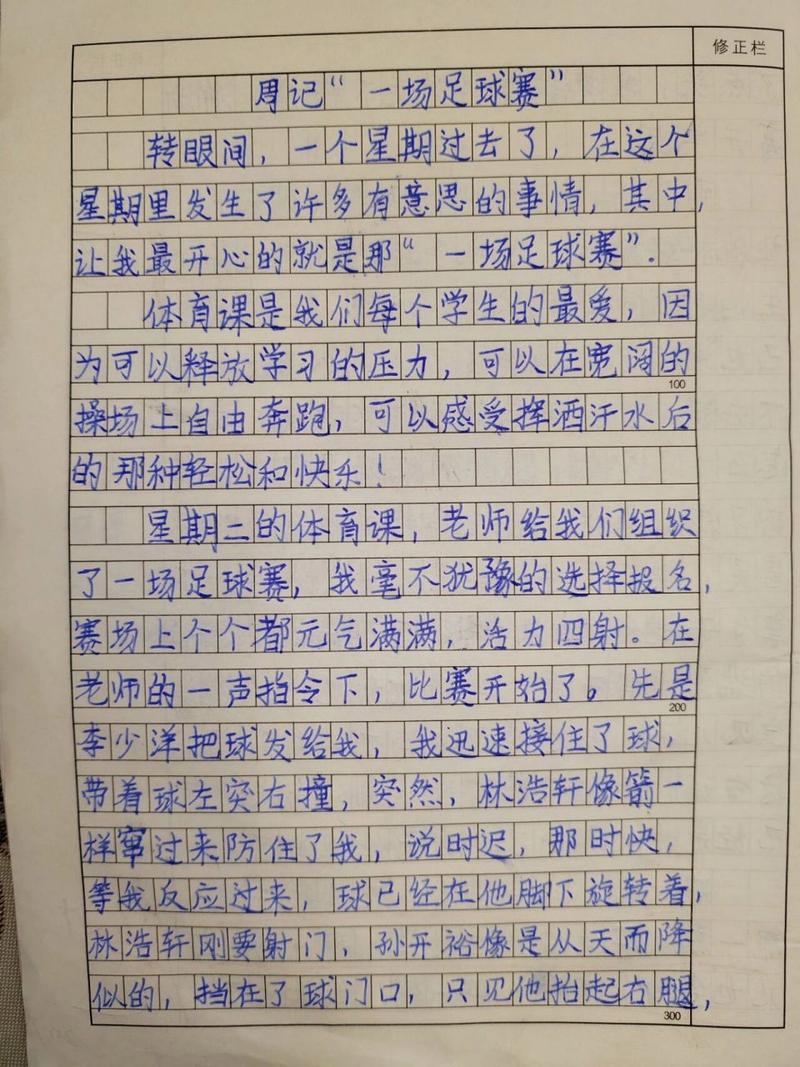 修正栏
周记“一场足球赛”
转眼间，一个星期过去了，在这个
星期里发生了许多有意思的事情，其中，
让我最开心的就是那“一场足球赛”.
体育课是我们每个学生的最爱，因
为可以释放学习的压力，可以在宽阔的
100
操场上自由奔跑，可以感受挥洒汗水后
的那种轻松和快乐！
星期二的体育课，老师给我们组织
了一场足球赛，我毫不犹豫的选择报名，
赛场上个个都元气满满，活力四射。在
老师的一声指令下，比赛开始了。先是
200
李少洋把球发给我，我迅速接住了球，
带着球左突右撞，突然，林浩轩像箭一
样窜过来防住了我，说时迟，那时快，
等我反应过来，球已经在他脚下旋转着，
林浩轩刚要射门，孙开裕像是从天而降
似的，挡在了球门口，只见他抬起右腿，
300